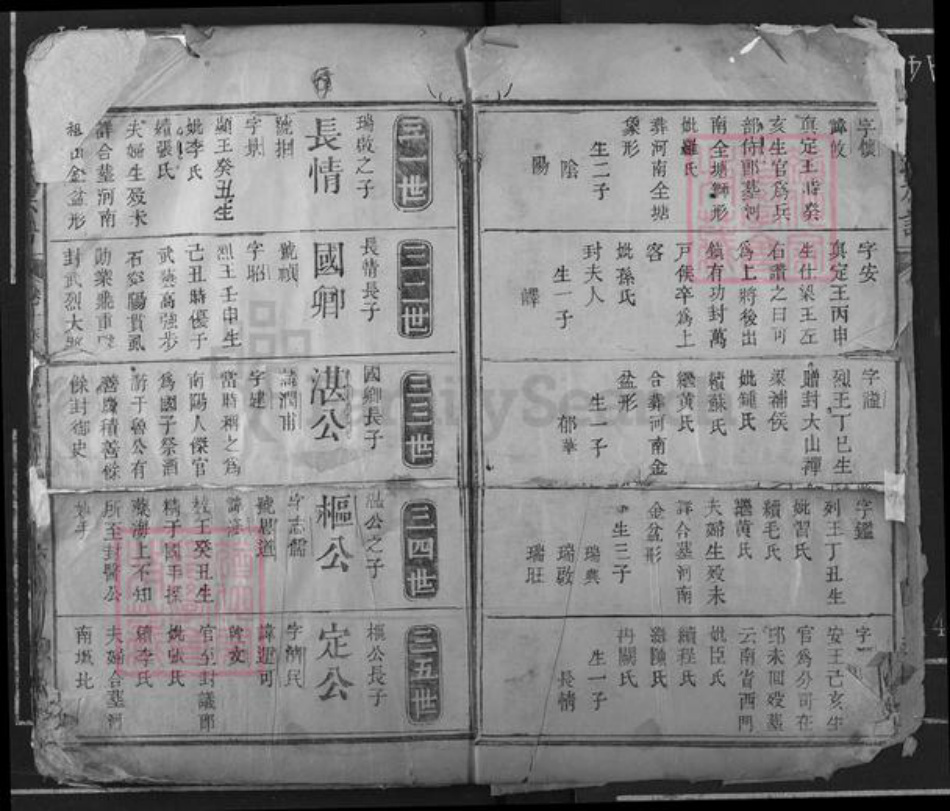 字懷
諱攸
真定王時癸
亥生官爲兵
部侍郎墓河
南全塘獅形
妣羅氏
葬河南全塘
象形
生二子
陰
陽
字安
真定王丙申
生仕梁王左
右讚之曰可
爲上將後出
鎮有功封萬
戸侯卒爲上
客
妣孫氏
封夫人
生一子
譯
字謚
烈王丁巳生
贈封大山禪
梁補侯
妣鍾氏
續蘇氏
繼黄氏
合葬河南金
盆形
生一子
郁華
字鑑
列王丁丑生
妣習氏
續毛氏
繼黄氏
夫婦生殁未
詳合墓河南
金盆形
生三子
瑞典
瑞敬
瑞旺
字
安王己亥生
官爲分司在
邛未囬殁墓
云南省西門
妣臣氏
續程氏
氏
冉關氏
生一子
長情
三一世
瑞敬之子
長情
號捆
字
顯王癸丑生
妣李氏
續張氏
夫婦生殁未
詳合墓河南
祖山金盆形
三二世
長情長子
國卿
號禎
字昭
烈王壬申生
己丑時優于
武藝高強步
石穿陽貫虱
勋業
封武烈大將
三三世
國卿長子
湛公
諱潤甫
字建
當時稱之爲
南陽人傑官
爲國子祭酒
于魯公有
善慶積善餘
餘封御史
三四世
湛公之子
樞公
字志儒
號思道
癸丑生
精于國手探
藥海上不知
所至封醫公
妙手
三五世
樞公長子
定公
字濟民
諱近可
官至封議郎
妣張氏
續李氏
夫婦合墓河
南壩北